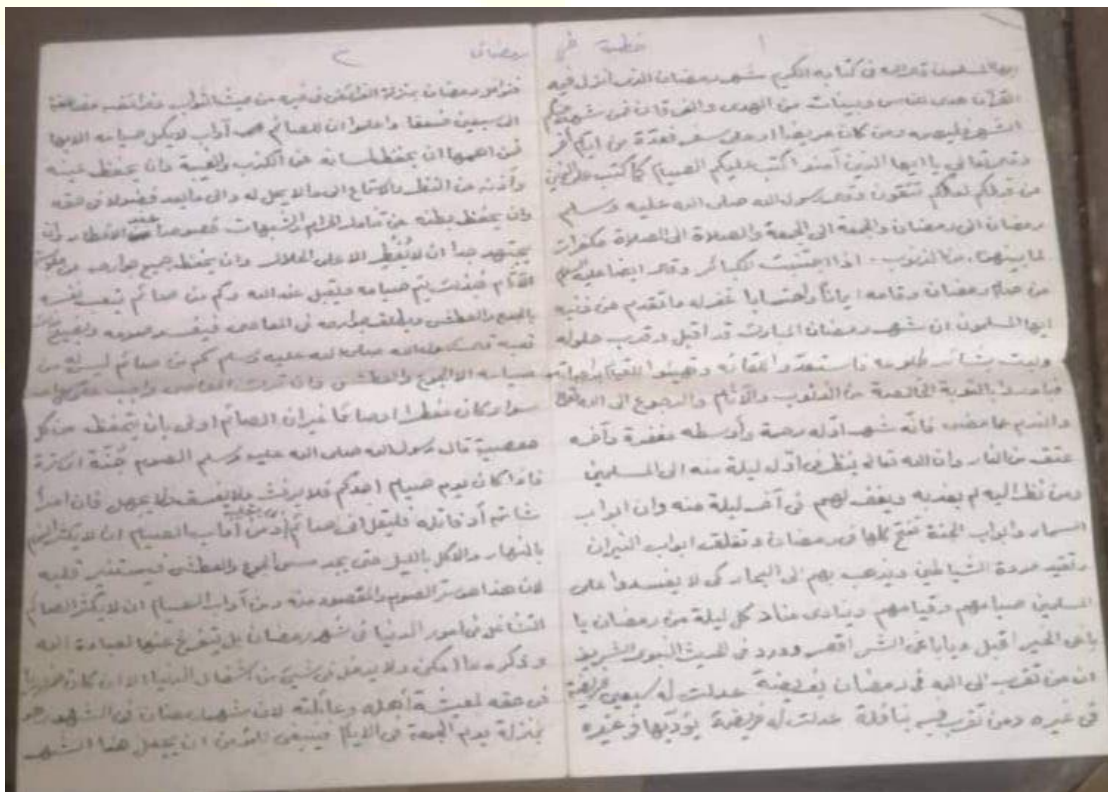 ١ خطبة في
ايها المسلمون قال الله في كتابه الكريم شهر رمضان الذي انزل فيه
القرآن هدى للناس وبينات من الهدى والفرقان فمن شهد منكم
الشهر فليصمه ومن كان مريضا او على سفر فعدة من ايام أخر
وقال تعالى يا ايها الذين آمنوا كتب عليكم الصيام كما كتب على الذين
من قبلكم لعلكم تتقون وقال رسول الله صلى الله عليه وسلم
رمضان الى رمضان والجمعة الى الجمعة والصلاة الى الصلاة مكفرات
لما بينهما من الذنوب اذا اجتنبت الكبائر وقال ايضا عليه
من صام رمضان وقامه ايمانا واحتسابا غفر له ما تقدم من ذنبه
ايها المسلمون ان شهر رمضان المبارك قد اقبل وقرب حلوله
بشائر طلوعه فاستعدوا للقائه وتهيئوا
بالتوبة الخالصة من الذنوب والآثام والرجوع الى الله
والندم على ما مضى فانه شهر اوله رحمة وأوسطه مغفرة وآخره
عتق من النار وان الله تعالى ينظر في اول ليلة منه الى المسلمين
ومن نظر اليه لم يعذبه ويغفر لهم في آخر ليلة منه وان ابواب
السماء وابواب الجنة تفتح كلها في رمضان وتغلق ابواب النيران
وتقيد مردة الشياطين ويذهب بهم الى البحار كي لا يفسدوا على
المسلمين صيامهم وقيامهم وينادي مناد كل ليلة من رمضان يا
باغي الخير اقبل ويا باغي الشر اقصر وورد في الحديث النبوي الشريف
ان من تقرب الى الله في رمضان بفريضة عدلت له سبعين فريضة
في غيره ومن تقرب فيه بنافلة عدلت له فريضة يؤديها في غيره
رمضان ٢
فنوافل رمضان بمنزلة الفرائض في غيره من حيث الثواب وفرائضه مضاعفة
الى سبعين ضعفا واعلموا ان للصائم آداب لا يكمل صيامه الا بها
فمن اهمها ان يحفظ لسانه عن الكذب والغيبة وان يحفظ عينه
وأذنه من النظر والاستماع الى ما لا يحل له والى ما يعد فضولا في حقه
وان يحفظ بطنه عن تناول الحرام والشبهات خصوصا عند الافطار وان
يجتهد جدا ان لا يفطر الا على الحلال وان يحفظ جميع جوارحه من
الآثام فبذلك يتم صيامه ويقبل عند الله وكم من صائم يتعب نفسه
بالجوع والعطش ويطلق جوارحه في المعاصي فيفسد صومه ويضيع
تعبه قال رسول الله صلى الله عليه وسلم كم من صائم ليس له من
صيامه الا الجوع والعطش وان ترك المعاصي واجب
سواء كان مفطرا او صائما غير ان الصائم اولى بان يتحفظ من كل
معصية قال رسول الله صلى الله عليه وسلم الصوم جُنّة
فاذا كان يوم صيام احدكم فلا يرفث ولا يفسق ولا يجهل فان امرأ
شاتمه او قاتله فليقل اني صائم ومن آداب الصيام ان لا يكثر النوم
بالنهار والاكل بالليل حتى يجد مس الجوع والعطش فيستنير قلبه
لان هذا هو سر الصوم والمقصود منه ومن آداب الصيام ان لا يكثر الصائم
التشاغل في امور الدنيا في شهر رمضان بل يتفرغ عنها لعبادة الله
وذكره ما امكن ولا يدخل في شيئ من اشغال الدنيا الا ان كان
في حقه لمعيشة أهله وعائلته لان شهر رمضان في الشهور هو
بمنزلة يوم الجمعة في الايام فينبغي للمؤمن ان يجعل هذا الشهر